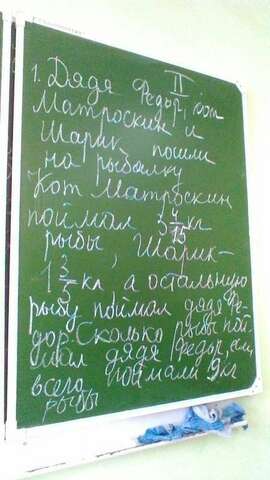 II
1. Дядя Федор, кот
Матроскин и
Шарик пошли
на рыбалку
Кот Матроскин
поймал 3 4/15 кг
рыбы, Шарик-
1 3/5 кг, а остальную
рыбу поймал дядя Фе-
дор. Сколько рыбы пой-
мал дядя Федор, если
всего поймали 9 кг
рыбы